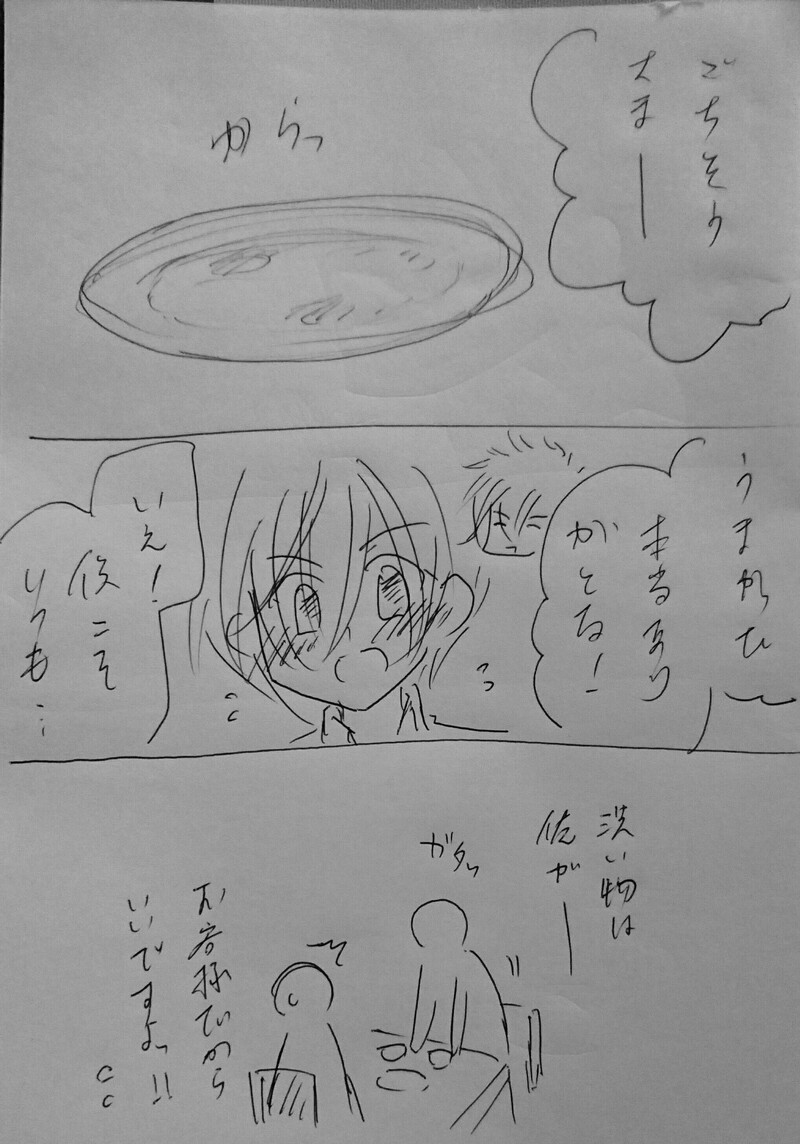 ごちそう
さまー
からっ
うまかった
本当あり
がとな!
いえ!
俺こそ
いつも…
洗い物は
俺がー
ガタッ
お客様だから
いいですよっ!!